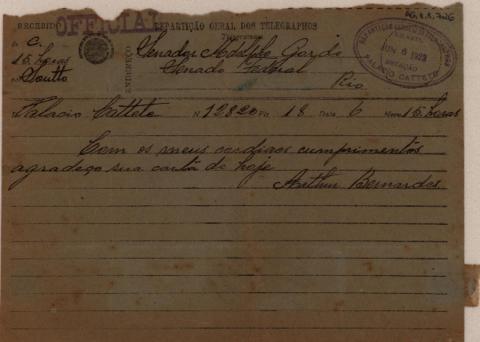 AG.1.1.726
RECEBIDO OFFICIAL REPARTIÇÃO GERAL DOS TELEGRAPHOS
De C.
15 horas
ENDEREÇO
Senador Adolpho Gordo
Senado Federal
Rio
JUN 6 1923
ESTAÇÃO
PALACIO CATTETE
Palacio Cattete N 12820 Pls 18 Data 6 Hora 15 horas
Com os meus cordiaes cumprimentos
agradeço sua carta de hoje
Arthur Bernardes